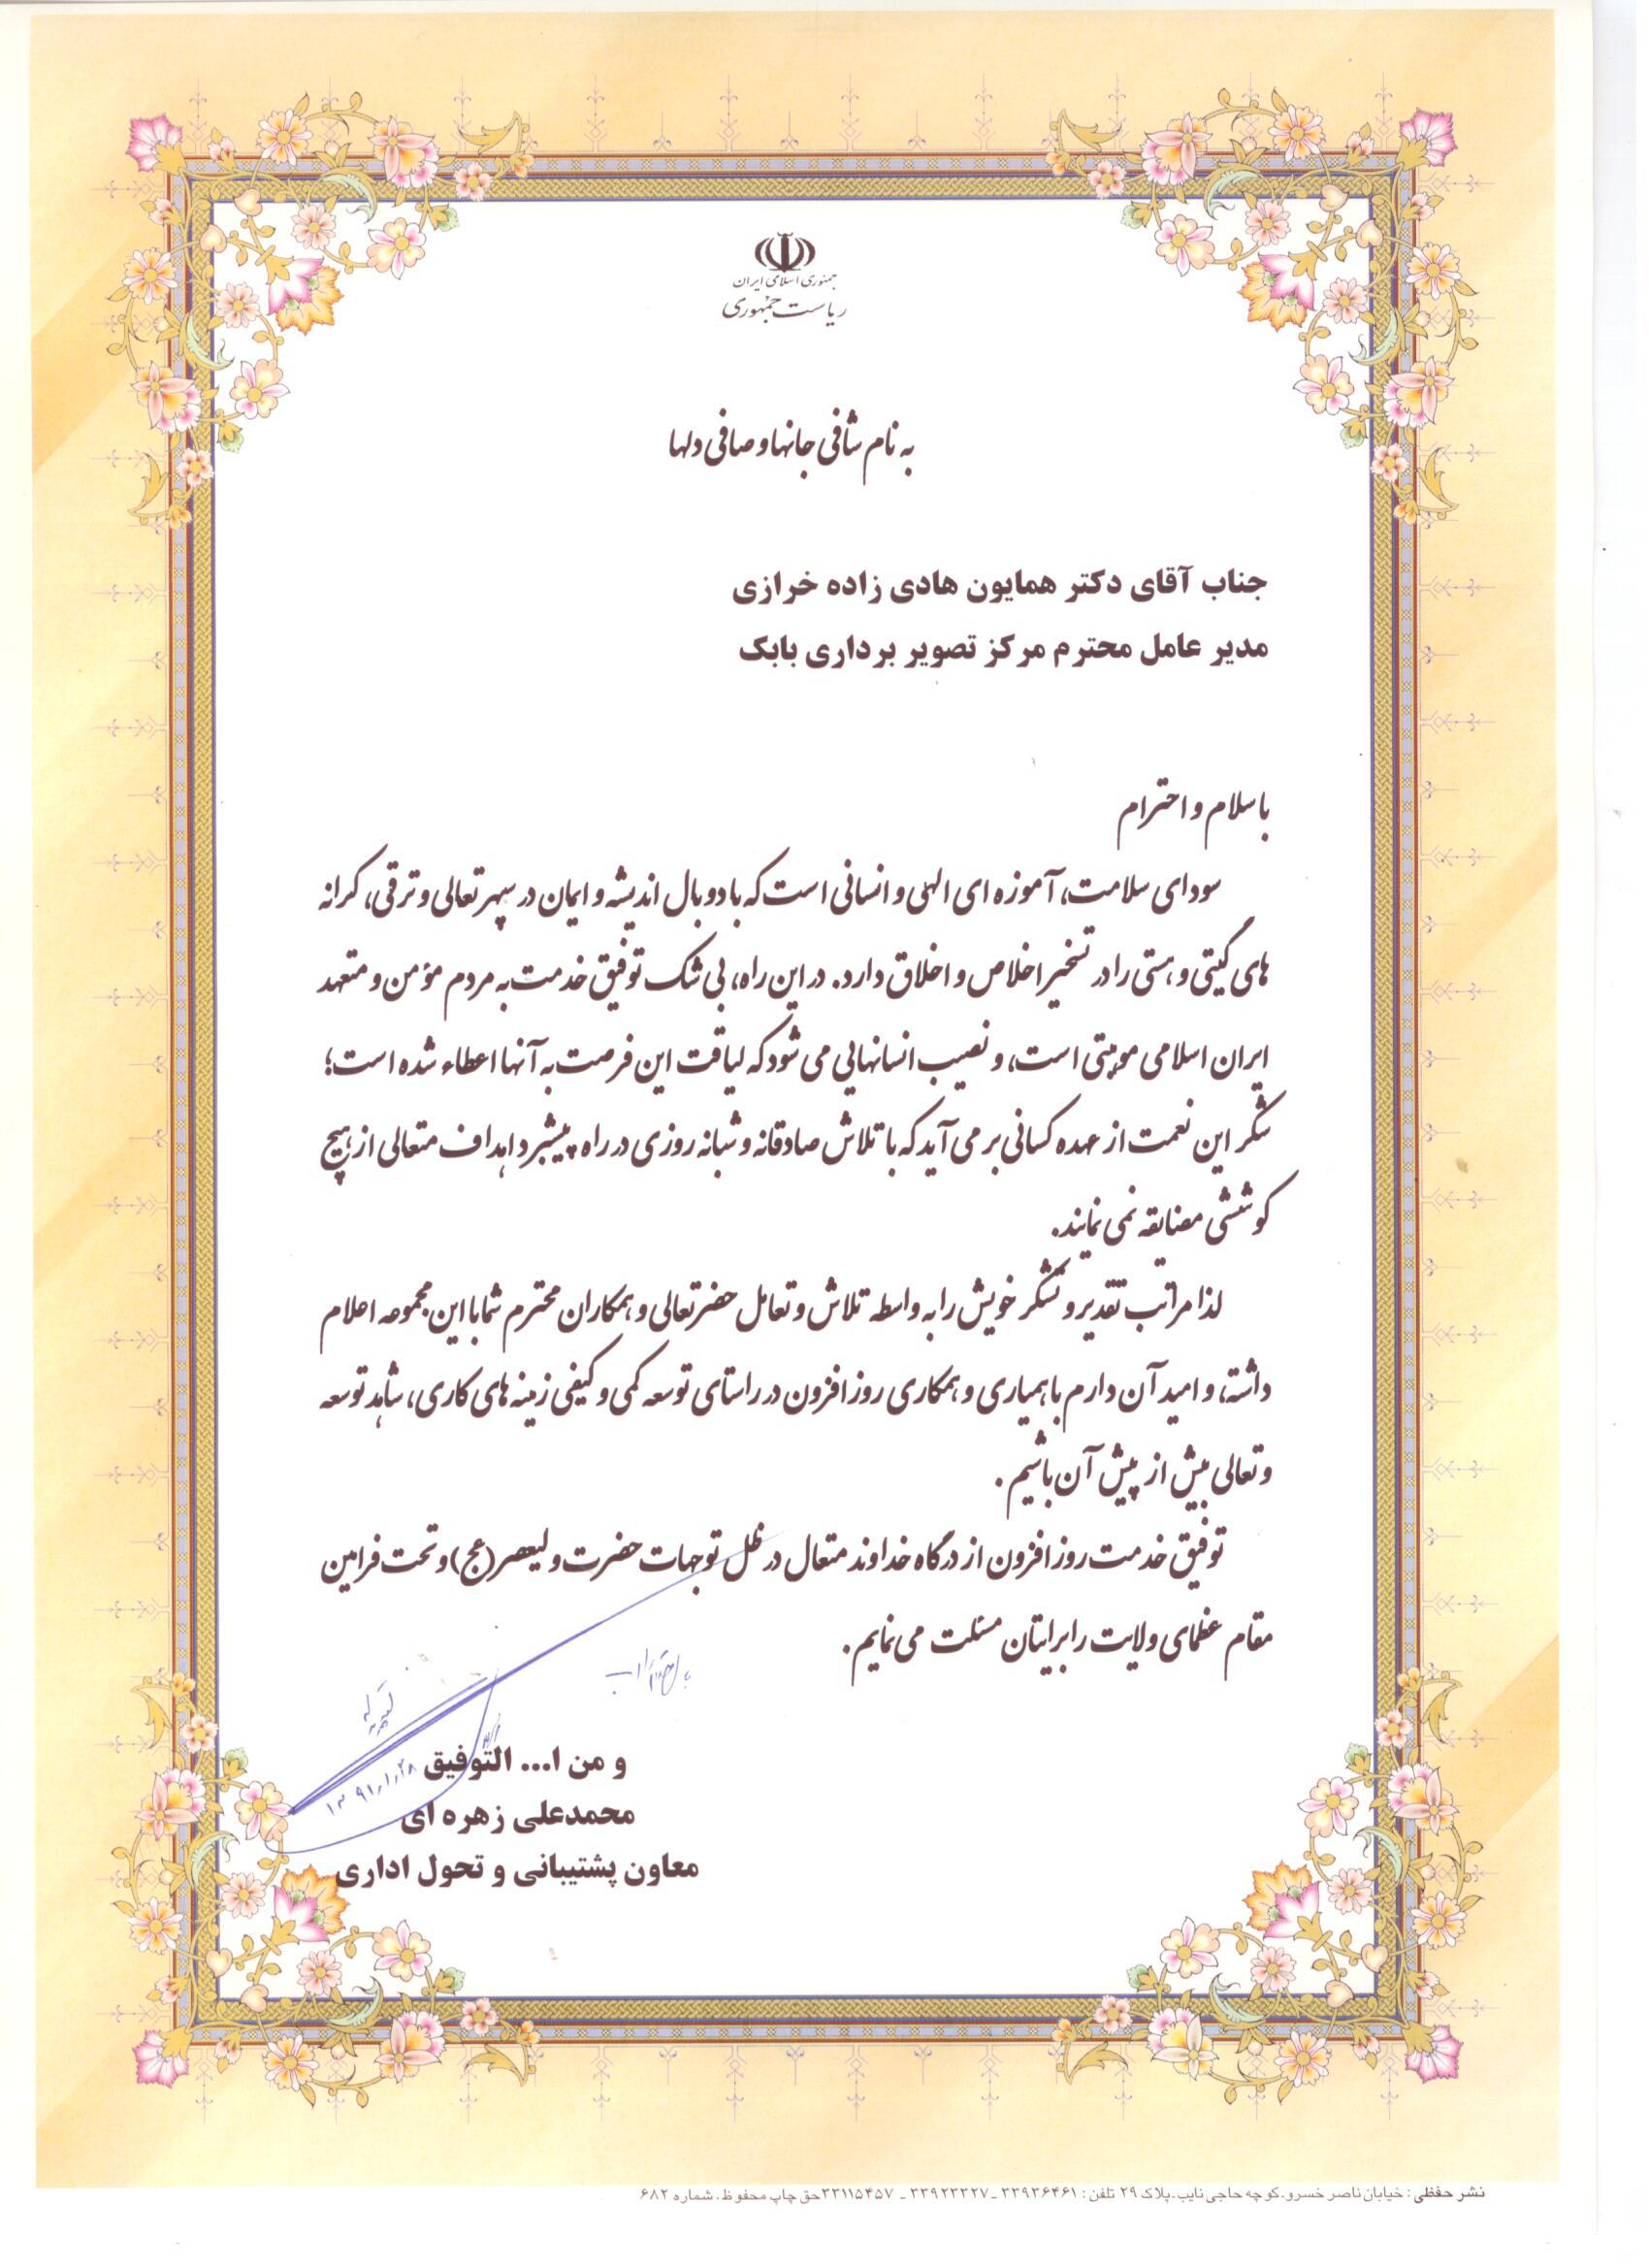 جمهوری اسلامی ایران
ریاست جمهوری
به نام شافی جانها و صافی دلها
جناب آقای دکتر همایون هادی زاده خرازی
مدیر عامل محترم مرکز تصویر برداری بابک
با سلام و احترام
سودای سلامت، آموزه ای الهی و انسانی است که با دو بال اندیشه و ایمان در سپهر تعالی و ترقی، کرانه
های گیتی و هستی را در تسخیر اخلاص و اخلاق دارد. در این راه، بی شک توفیق خدمت به مردم مؤمن و متعهد
ایران اسلامی موهبتی است، و نصیب انسانهایی می شود که لیاقت این فرصت به آنها اعطاء شده است؛
شکر این نعمت از عهده کسانی بر می آید که با تلاش صادقانه و شبانه روزی در راه پیشبرد اهداف متعالی از هیچ
کوششی مضایقه نمی نمایند.
لذا مراتب تقدیر و تشکر خویش را به واسطه تلاش و تعامل حضرتعالی و همکاران محترم شما با این مجموعه اعلام
داشته، و امید آن دارم با همیاری و همکاری روز افزون در راستای توسعه کمی و کیفی زمینه های کاری، شاهد توسعه
و تعالی بیش از پیش آن باشیم.
توفیق خدمت روز افزون از درگاه خداوند متعال در ظل توجهات حضرت ولیعصر (عج) و تحت فرامین
مقام عظمای ولایت را برایتان مسئلت می نمایم.
و من ا... التوفیق
۱۳۹۱/۱/۲۸
محمدعلی زهره ای
معاون پشتیبانی و تحول اداری
نشر حفظی : خیابان ناصر خسرو.کوچه حاجی نایب.پلاک ۲۹ تلفن : ۳۳۹۳۶۴۶۱ ـ ۳۳۹۲۳۳۲۷ ـ ۳۳۱۱۵۴۵۷ حق چاپ محفوظ. شماره ۶۸۲